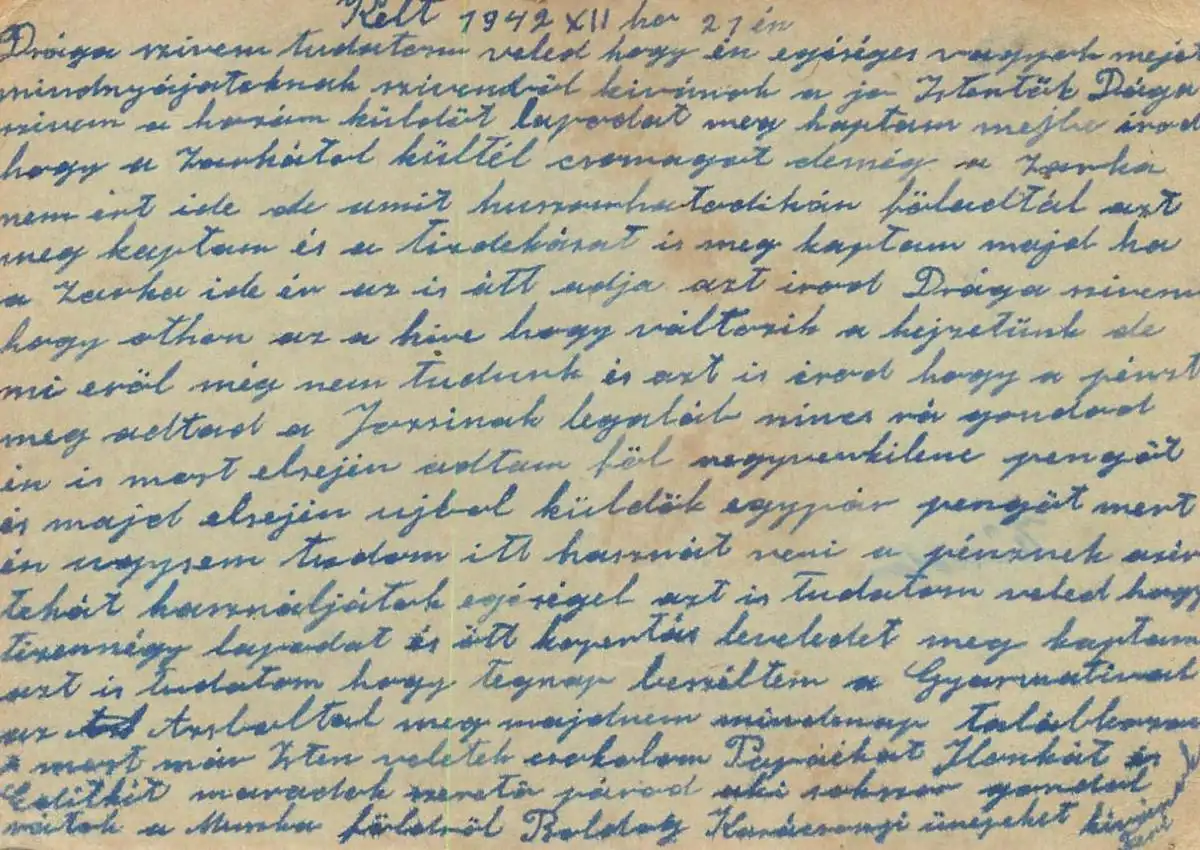 Kelt 1942 XII hó 21 én
Drága szivem tudatom veled hogy én egéséges vagyok mejet
mindnyájatoknak szivemböl kivánok a jo Istentöl Dága
szivem a hozám küldöt lapodat meg kaptam mejbe irod
hogy a Zsarkátol kültél csomagot demég a Zsarka
nem ért ide de amit huszonhatodikán föladtál azt
meg kaptam és a tizdekásat is meg kaptam majd ha
a ide ér az is átt adja azt irod Drága szivem
hogy othon az a hire hogy változik a hejzetünk de
mi eröl még nem tudunk és azt is irod hogy a pénzt
meg adtad a Jozsinak legaláb nincs rá gondod
én is most elsején adtam föl negyvenkilenc pengöt
és majd elsején ujbol küldök egypár pengöt mert
én ugysem tudom itt hasznát veni a pénznek
tehát használjátok egéségel azt is tudatom veled hogy
tizennégy lapodat és ött kopertás leveledet meg kaptam
azt is tudatom hogy tegnap beszéltem a Gyarmatival
az meg majdnem mindenap
most már Isten veletek csokolom Papáékat Ilonkát és
Editkét maradok szeretö párod aki sokszor gondol
rátok a Muszka földröl Boldog Karácsonyi ünepeket kivánok